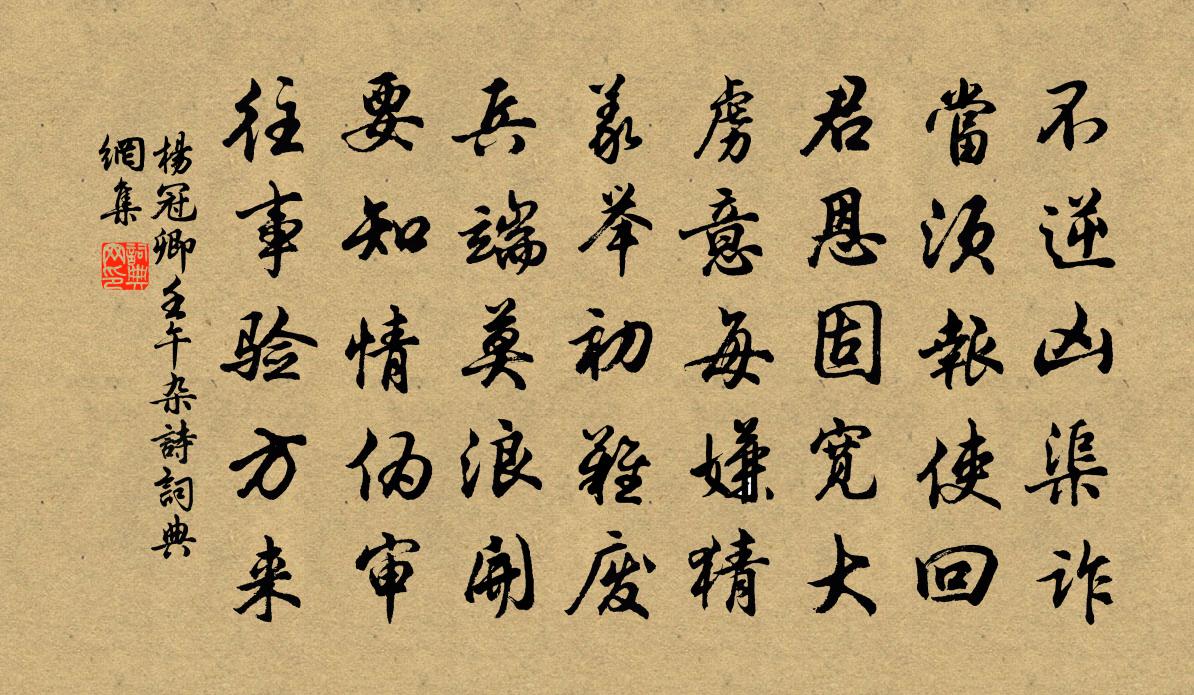 不逆凶渠诈
當须報使回
君恩固宽大
虏意每嫌猜
义举初难废
兵端莫浪開
要知情伪审
往事验方来
楊冠卿壬午杂詩詞典
網集
詞典网印